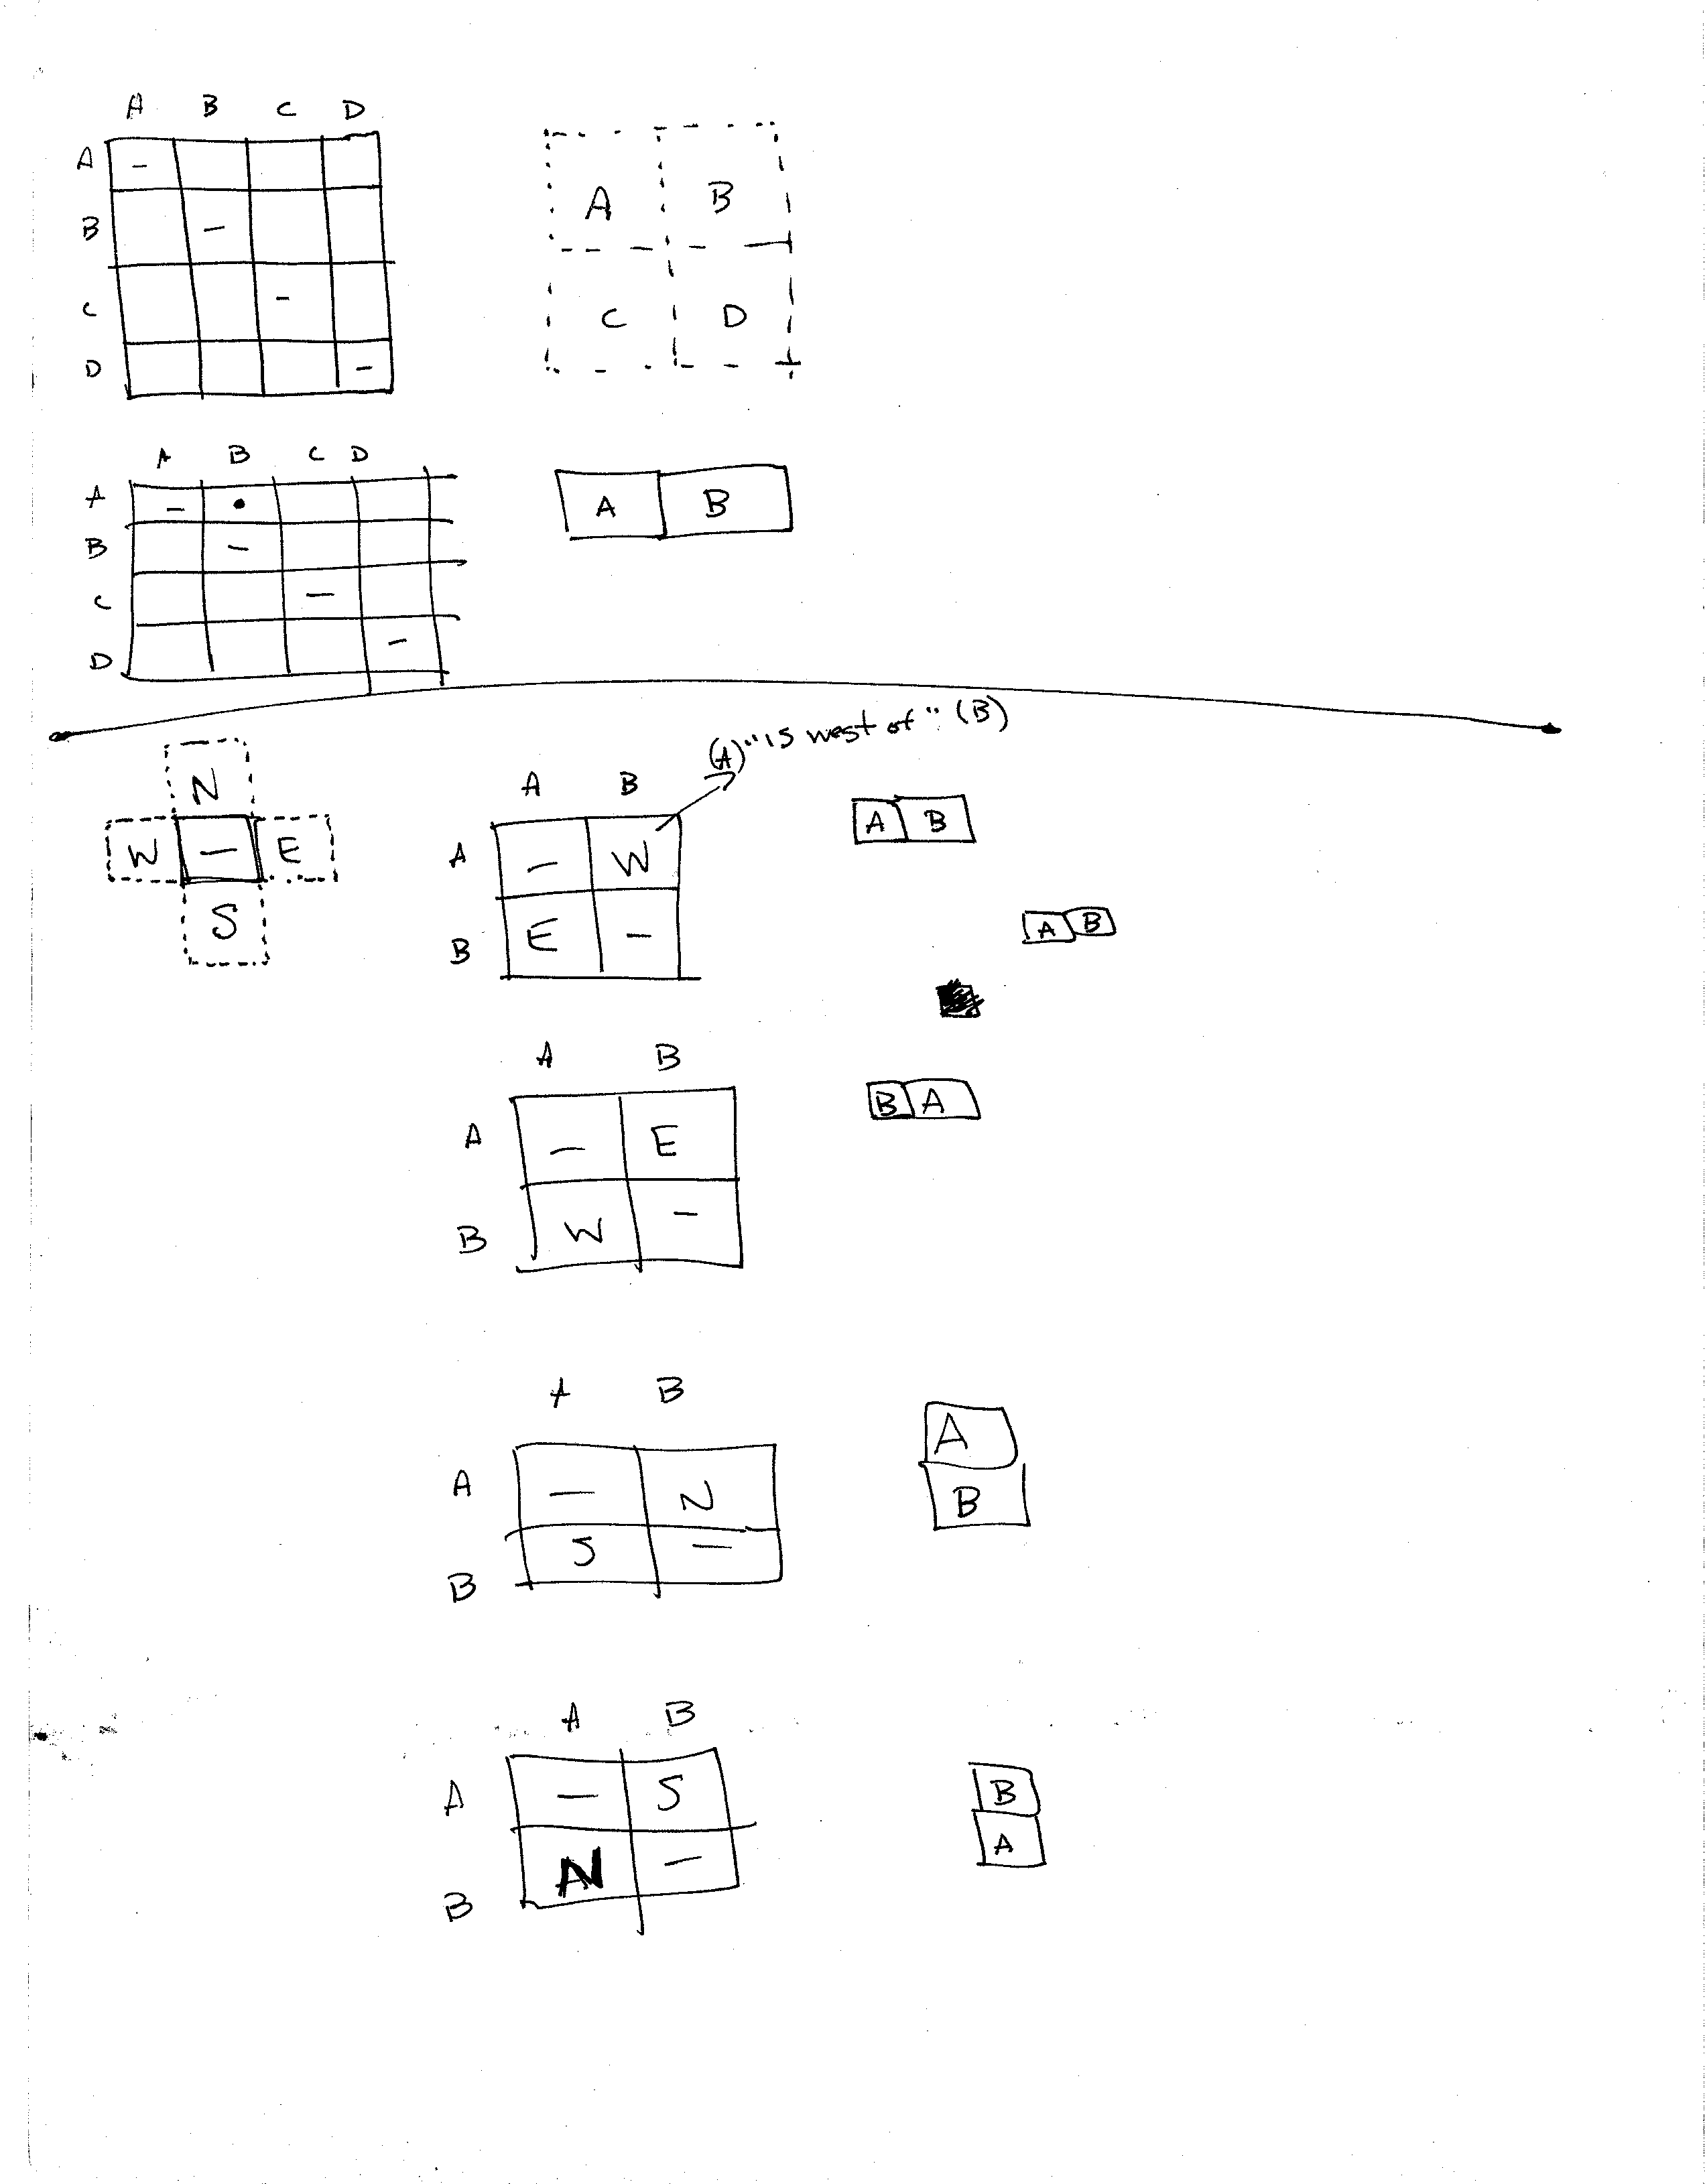 A B C D
A –
B –
C –
D –
A B
C D
A B C D
A – •
B –
C –
D –
A B
(A) "is west of" (B)
N
W – E
S
A B
A – W
B E –
A B
A B
A B
A – E
B W –
B A
A B
A – N
B S –
A
B
A B
A – S
B N –
B
A